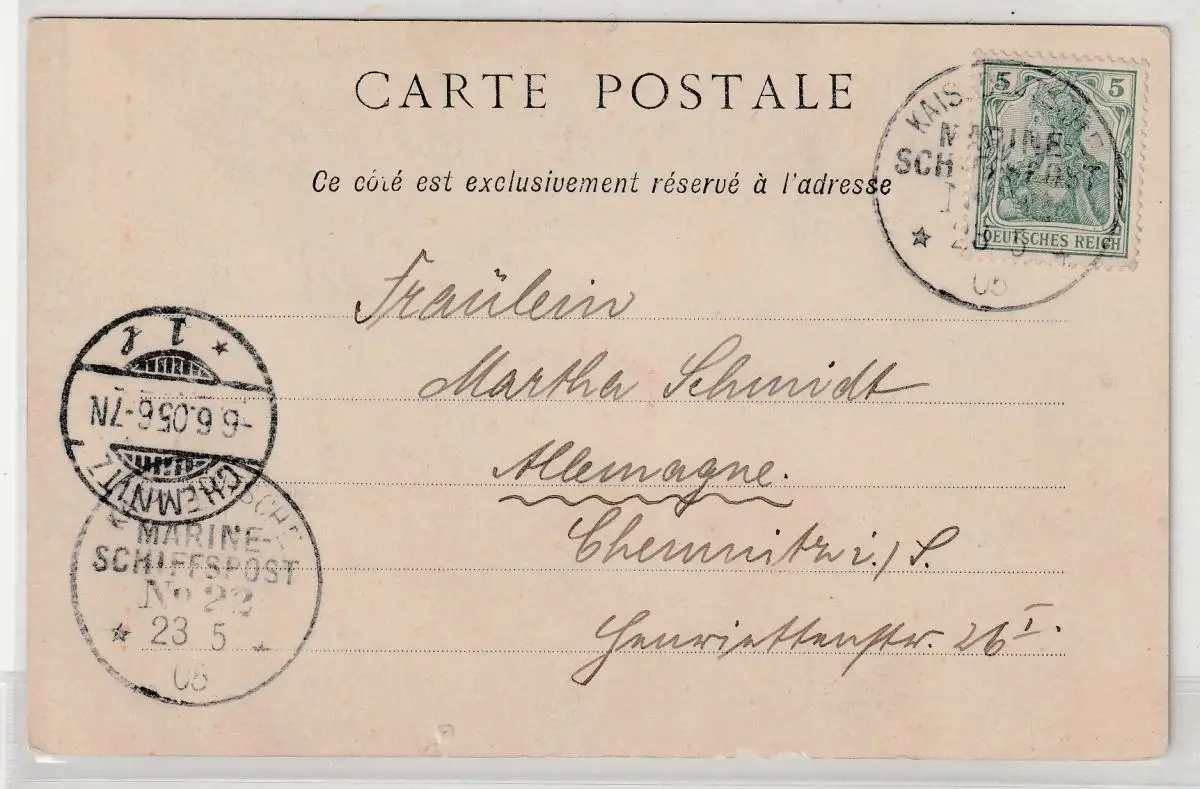 CARTE POSTALE
Ce côté est exclusivement réservé à l'adresse
5 5
DEUTSCHES REICH
MARINE
SCHIFFSPOST
23 5
05
Fräulein
Martha Schmidt
Allemagne.
Chemnitz i./S.
Henriettenstr. 26 I.
CHEMNITZ
-6.6.05.6-7N
* 1
MARINE-
SCHIFFSPOST
No 22
* 23 5 *
05